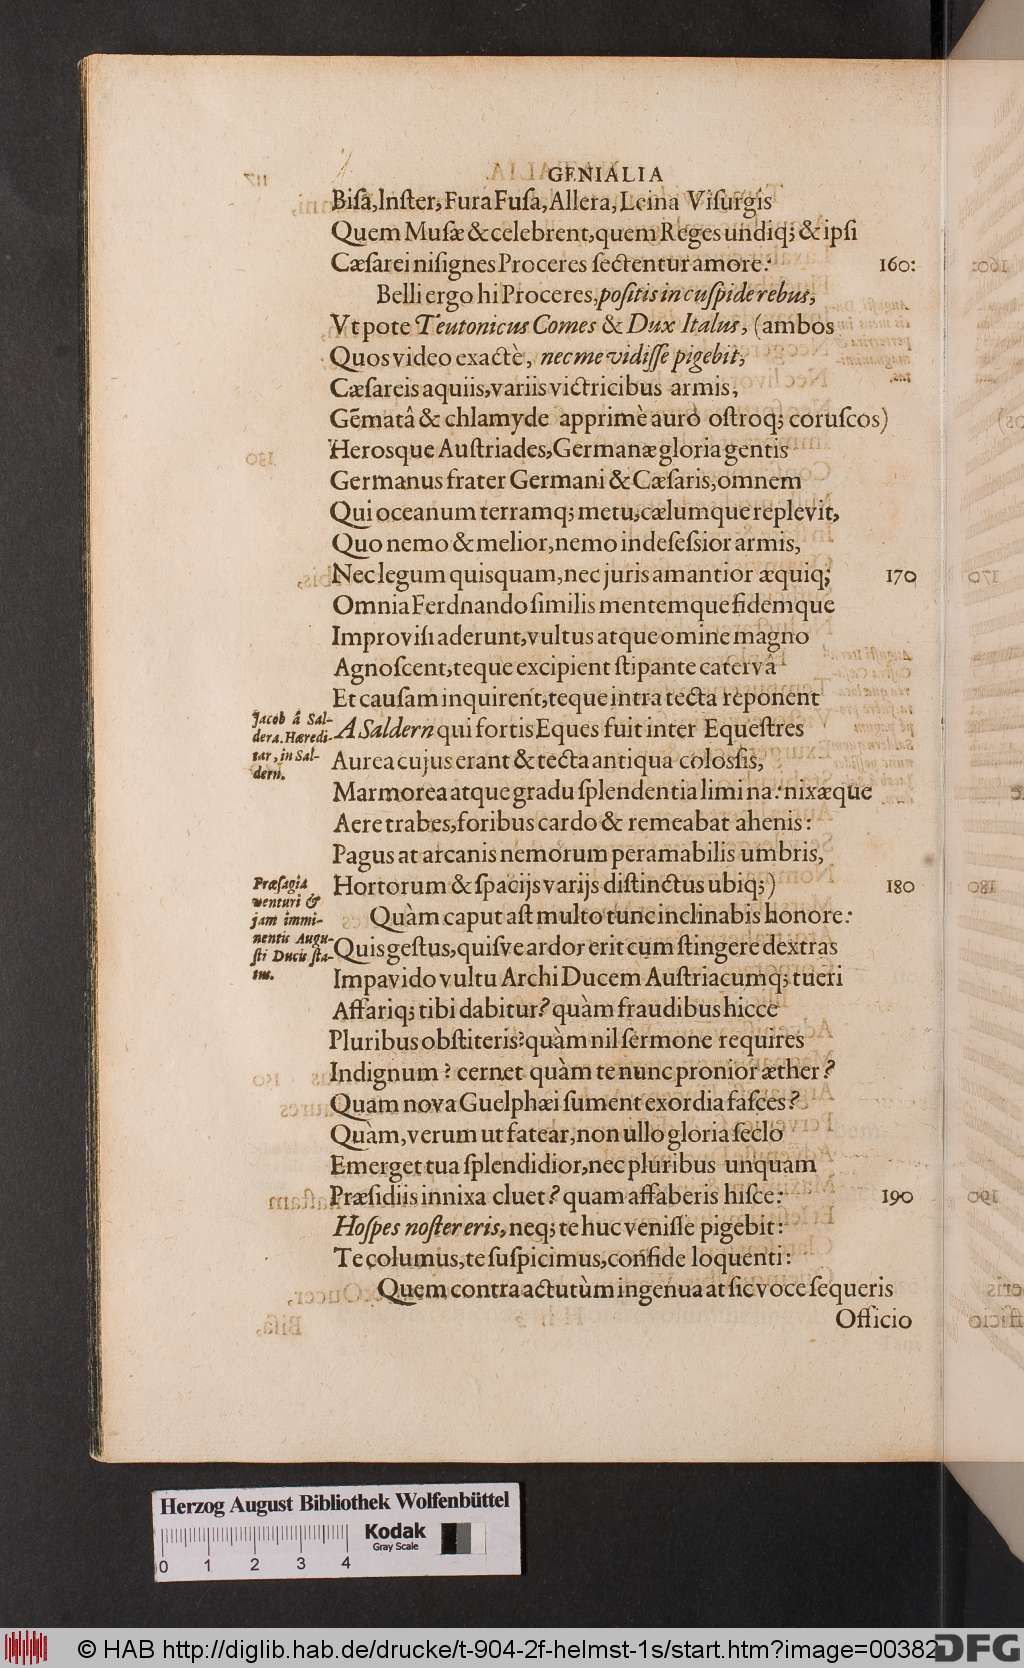 GENIALIA
Bisâ, Inster, Fura Fusa, Allera, Leina Visurgis
Quem Musæ & celebrent, quem Reges undiq; & ipsi
Cæsarei nisignes Proceres sectentur amore: 160:
Belli ergo hi Proceres, positis in cuspide rebus,
Vt pote Teutonicus Comes & Dux Italus, (ambos
Quos video exactè, nec me vidisse pigebit,
Cæsareis aquiis, variis victricibus armis,
Gẽmatâ & chlamyde apprimè auro ostroq; coruscos)
Herosque Austriades, Germanæ gloria gentis
Germanus frater Germani & Cæsaris, omnem
Qui oceanum terramq; metu, cælumque replevit,
Quo nemo & melior, nemo indefessior armis,
Nec legum quisquam, nec juris amantior æquiq; 170
Omnia Ferdnando similis mentemque fidemque
Improvisi aderunt, vultus atque omine magno
Agnoscent, teque excipient stipante catervâ
Et causam inquirent, teque intra tecta reponent
Jacob â Sal-
dera. Hæredi-
tar, in Sal-
dern.
A Saldern qui fortis Eques fuit inter Equestres
Aurea cujus erant & tecta antiqua colossis,
Marmorea atque gradu splendentia limi na: nixæque
Aere trabes, foribus cardo & remeabat ahenis:
Pagus at arcanis nemorum peramabilis umbris,
Hortorum & spacijs varijs distinctus ubiq;) 180
Præsagia
venturi &
jam immi-
nentis Augu-
sti Ducis sta-
tus.
Quàm caput ast multo tunc inclinabis honore:
Quis gestus, quisve ardor erit cum stingere dextras
Impavido vultu Archi Ducem Austriacumq; tueri
Affariq; tibi dabitur? quàm fraudibus hicce
Pluribus obstiteris? quàm nil sermone requires
Indignum? cernet quàm te nunc pronior æther?
Quam nova Guelphæi sument exordia fasces?
Quàm, verum ut fatear, non ullo gloria seclo
Emerget tua splendidior, nec pluribus unquam
Præsidiis innixa cluet? quam affaberis hisce: 190
Hospes noster eris, neq; te huc venisse pigebit:
Te columus, te suspicimus, confide loquenti:
Quem contra actutùm ingenua at sic voce sequeris
Officio
Herzog August Bibliothek Wolfenbüttel
Kodak
Gray Scale
0 1 2 3 4
© HAB http://diglib.hab.de/drucke/t-904-2f-helmst-1s/start.htm?image=00382
DFG